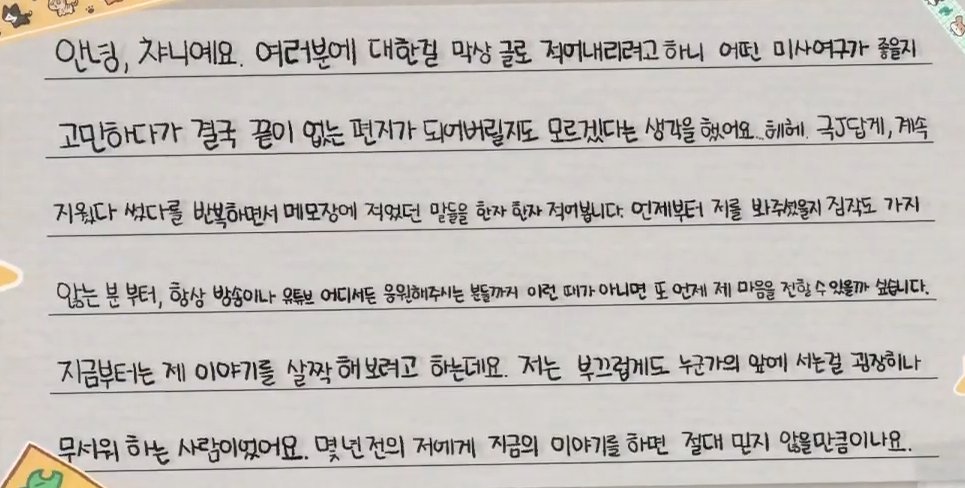 안녕, 챠니예요. 여러분에 대한걸 막상 글로 적어내리려고 하니 어떤 미사여구가 좋을지
고민하다가 결국 끝이 없는 편지가 되어버릴지도 모르겠다는 생각을 했어요...헤헤. 극J답게, 계속
지웠다 썼다를 반복하면서 메모장에 적었던 말들을 한자 한자 적어봅니다. 언제부터 저를 봐주셨을지 짐작도 가지
않는 분 부터, 항상 방송이나 유튜브 어디서든 응원해주시는 분들까지 이런 때가 아니면 또 언제 제 마음을 전할 수 있을까 싶습니다.
지금부터는 제 이야기를 살짝 해보려고 하는데요. 저는 부끄럽게도 누군가의 앞에 서는걸 굉장히나
무서워 하는 사람이었어요. 몇 년 전의 저에게 지금의 이야기를 하면 절대 믿지 않을만큼이나요.